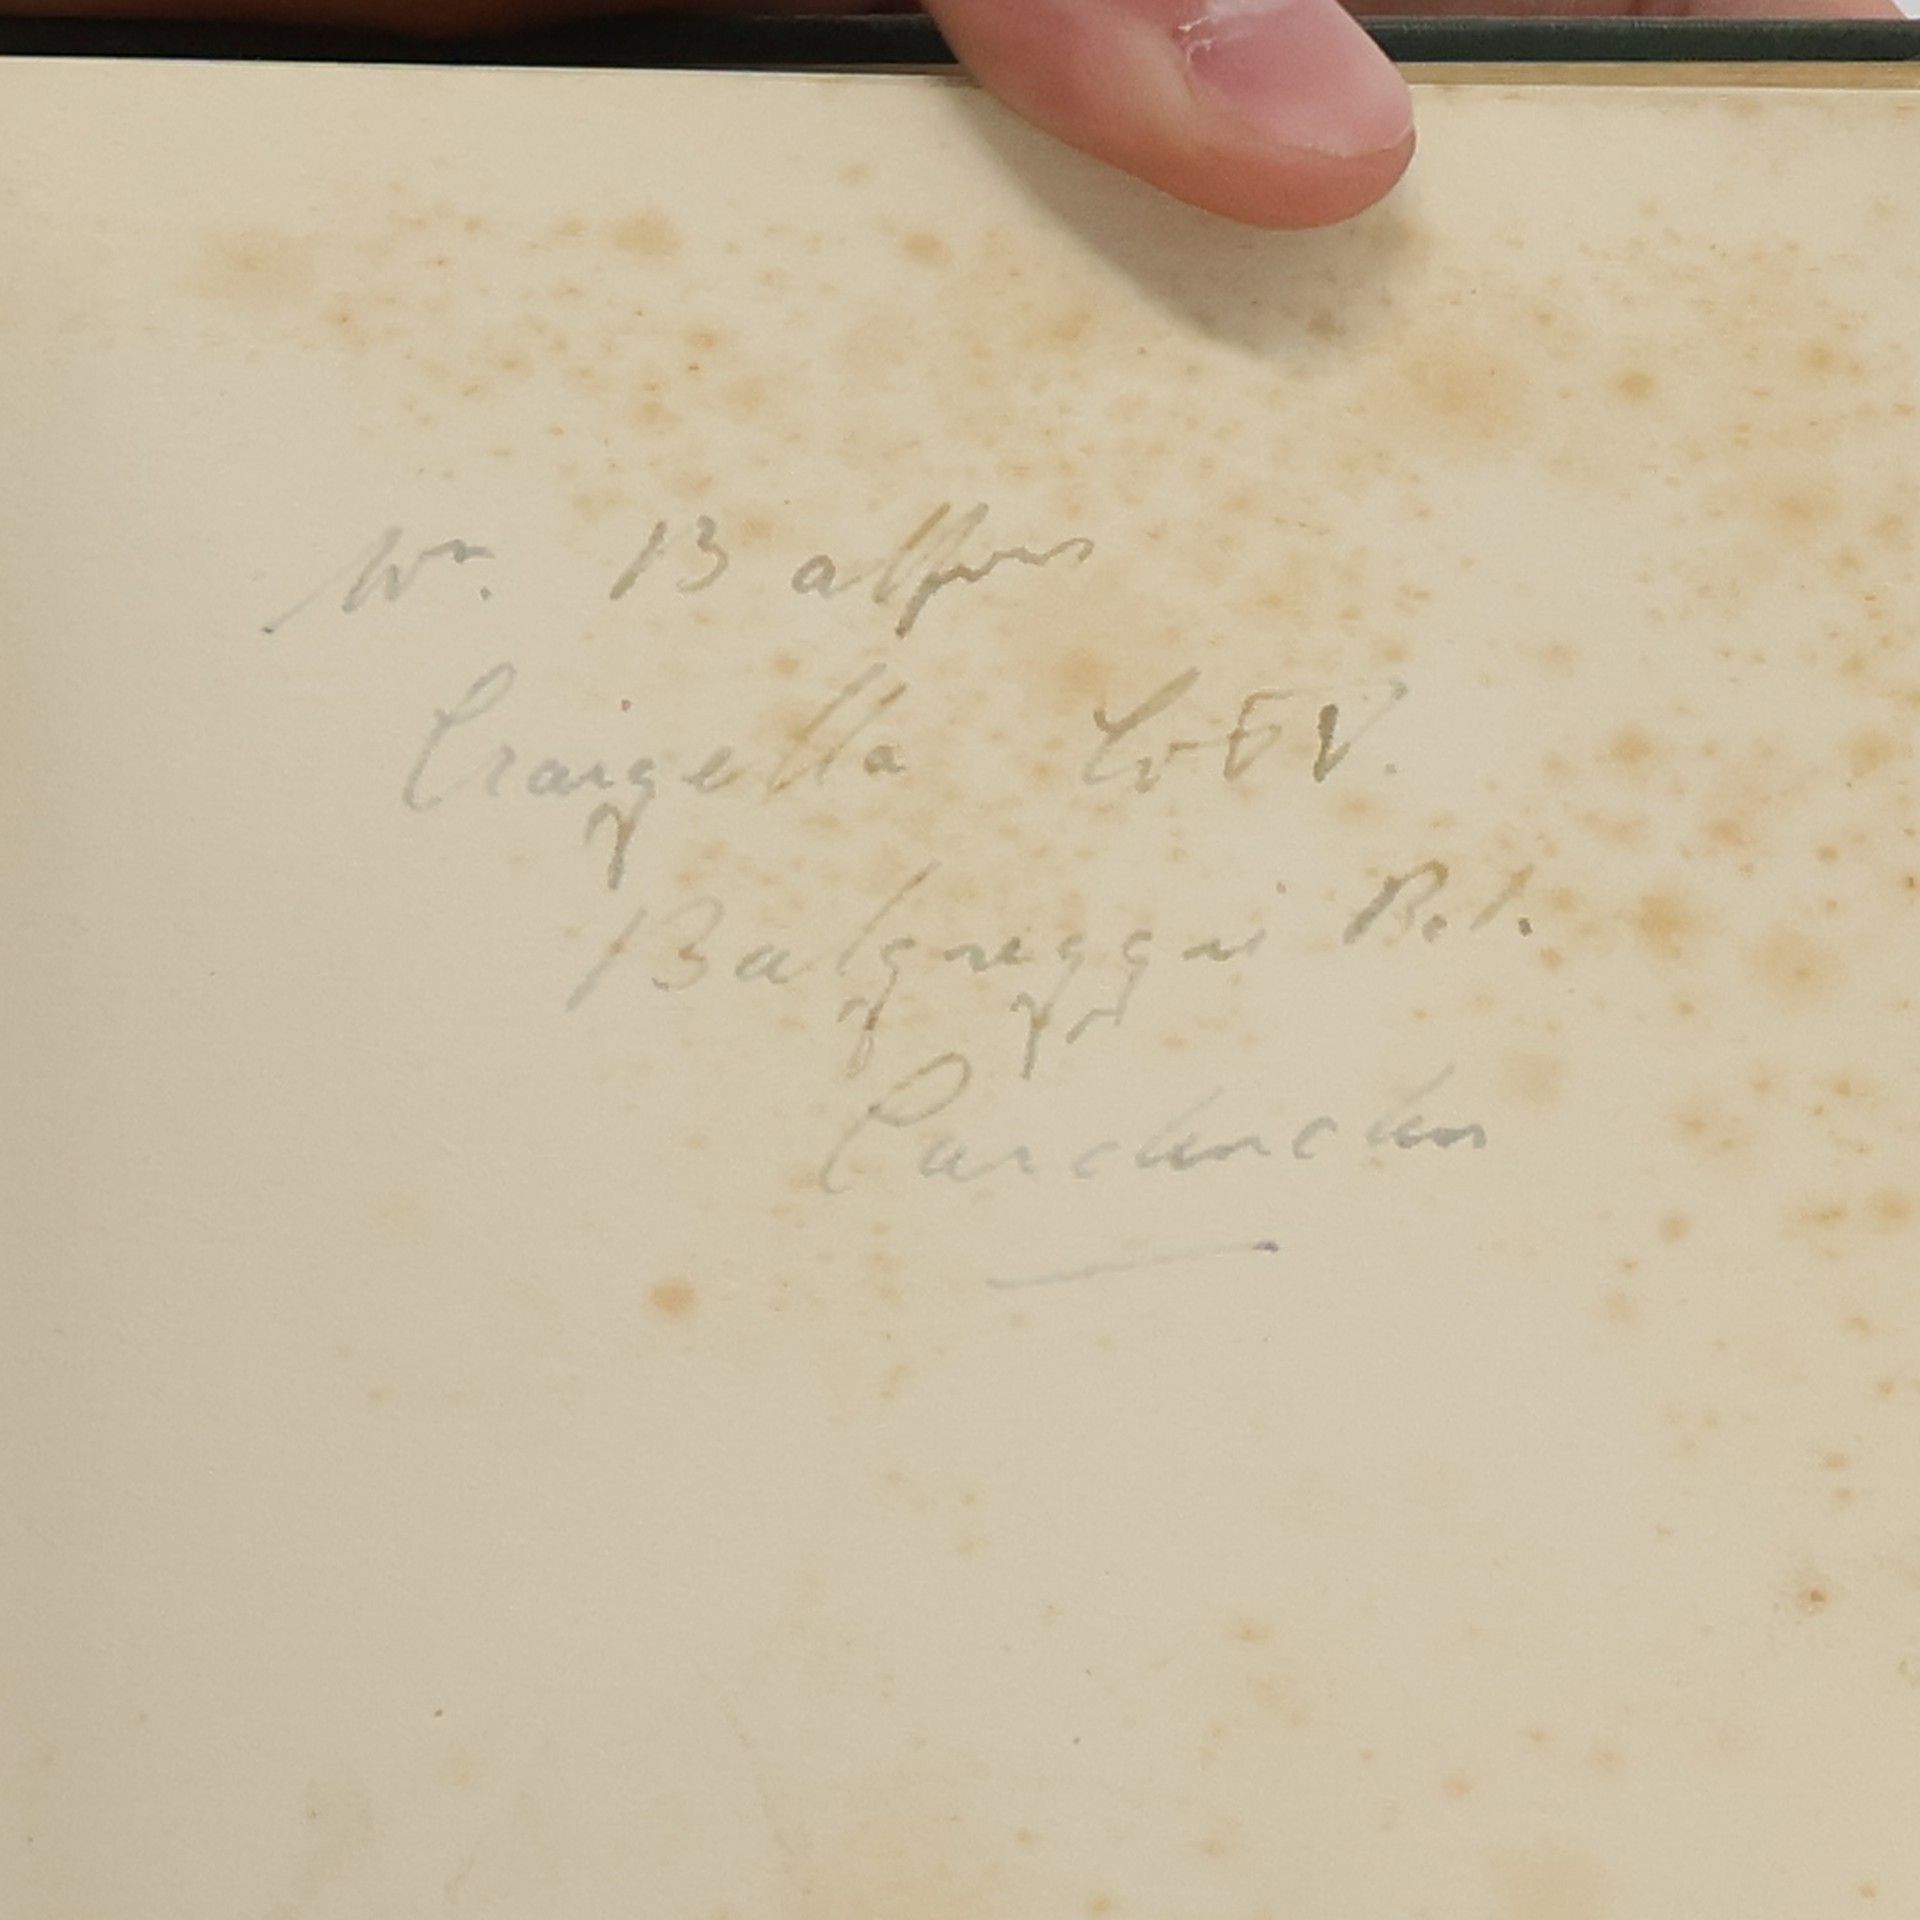 Wm. Balfour
Craigella Cott.
Balgreggie Rd.
Cardenden